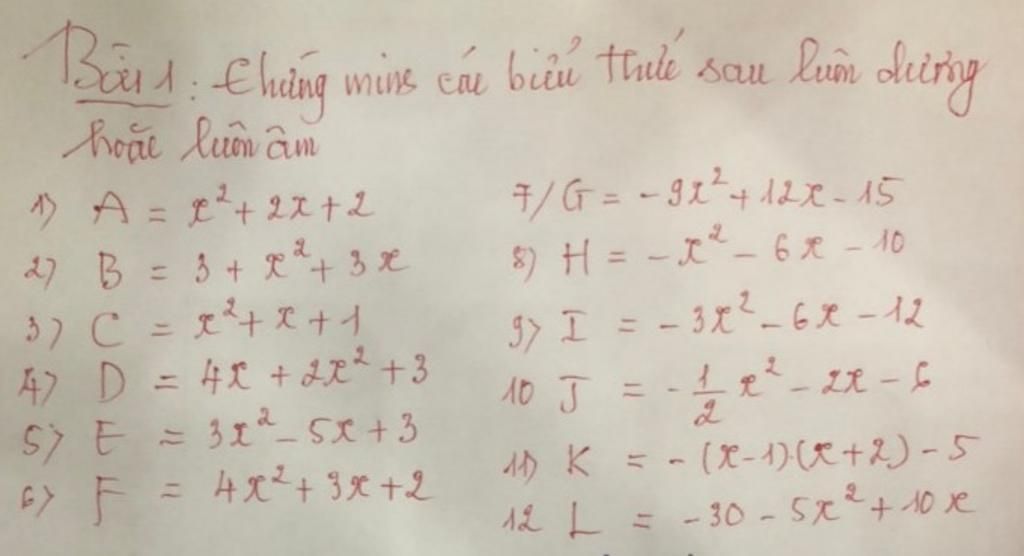 Bài 1: Chứng mins các biểu thức sau luôn dương
hoặc luôn âm
1) A = x² + 2x + 2
2) B = 3 + x² + 3x
3) C = x² + x + 1
4) D = 4x + 2x² + 3
5) E = 3x² - 5x + 3
6) F = 4x² + 3x + 2
7/ G = -9x² + 12x - 15
8) H = -x² - 6x - 10
9) I = -3x² - 6x - 12
10 J = -1/2 x² - 2x - 6
11) K = -(x-1).(x+2) - 5
12 L = -30 - 5x² + 10x